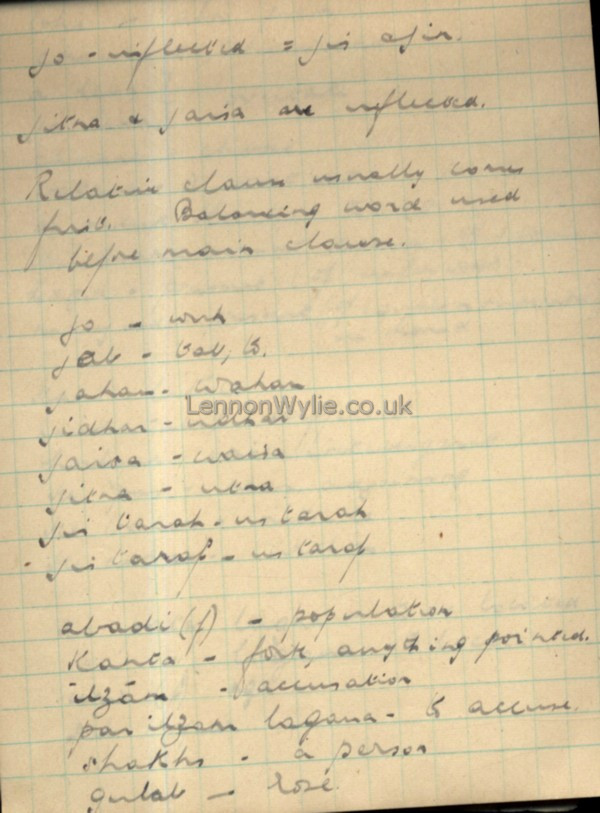 jo - inflected = jis
jitna & jaisa are inflected.
Relative clause usually comes
first. Balancing word used
before main clause.
jo - woh
jab - tab, to.
jahan - wahan
LennonWylie.co.uk
jidhar - udhar
jaisa - waisa
jitna - utna
jis tarah - us tarah
jis taraf - us taraf
abadi (f) - population
Kanta - fork, anything pointed.
ilzām - accusation
par ilzam lagana - to accuse.
shakhs - a person
gulab - rose.